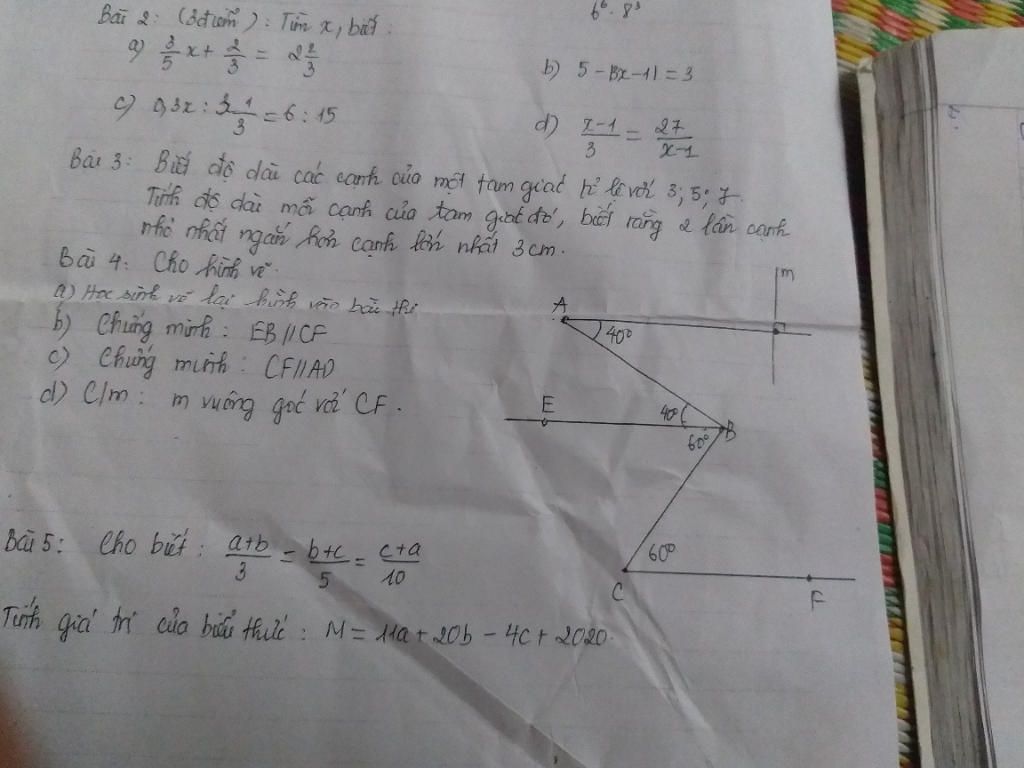 6⁶ . 8³
Bài 2: (3điểm): Tìm x, biết:
a) 3/5 x + 2/3 = 2 2/3
b) 5 - |3x - 1| = 3
c) 0,3x : = 6 : 15
d) x-1/3 = 27/x-1
Bài 3: Biết độ dài các cạnh của một tam giác tỉ lệ với 3; 5; 7.
Tính độ dài mỗi cạnh của tam giác đó, biết rằng 2 lần cạnh
nhỏ nhất ngắn hơn cạnh lớn nhất 3 cm.
Bài 4: Cho hình vẽ.
a) Học sinh vẽ lại hình vào bài thi
b) Chứng minh: EB // CF
c) Chứng minh: CF // AD
d) C/m: m vuông góc với CF.
m
A
40°
E
40°
B
60°
60°
C
F
Bài 5: Cho biết: a+b/3 = b+c/5 = c+a/10
Tính giá trị của biểu thức: M = 11a + 20b - 4c + 2020.